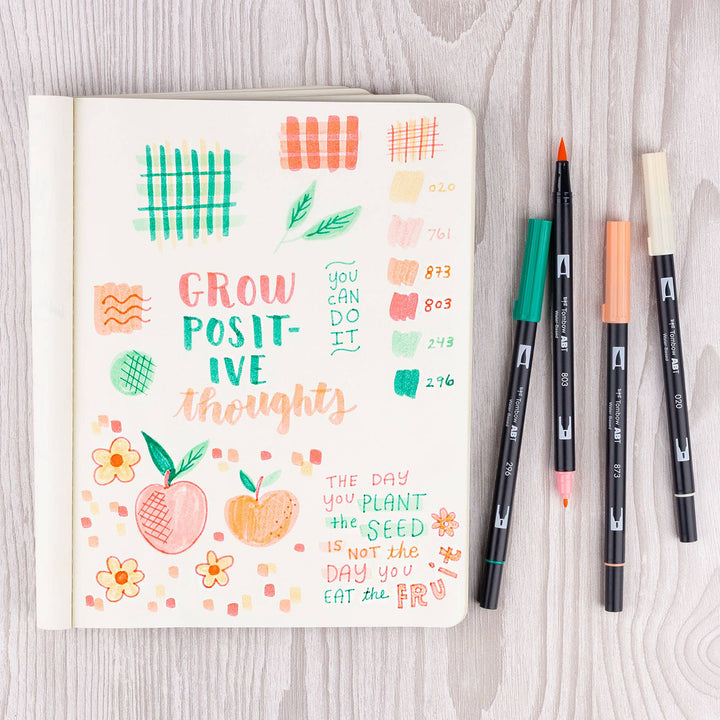 020
761
873
803
243
296
GROW
POSIT-
IVE
thoughts
YOU
CAN
DO
IT
THE DAY
YOU PLANT
the SEED
IS NOT the
DAY YOU
EAT the FRUIT
Tombow ABT
296
Tombow ABT
803
Tombow ABT
873
Tombow ABT
020